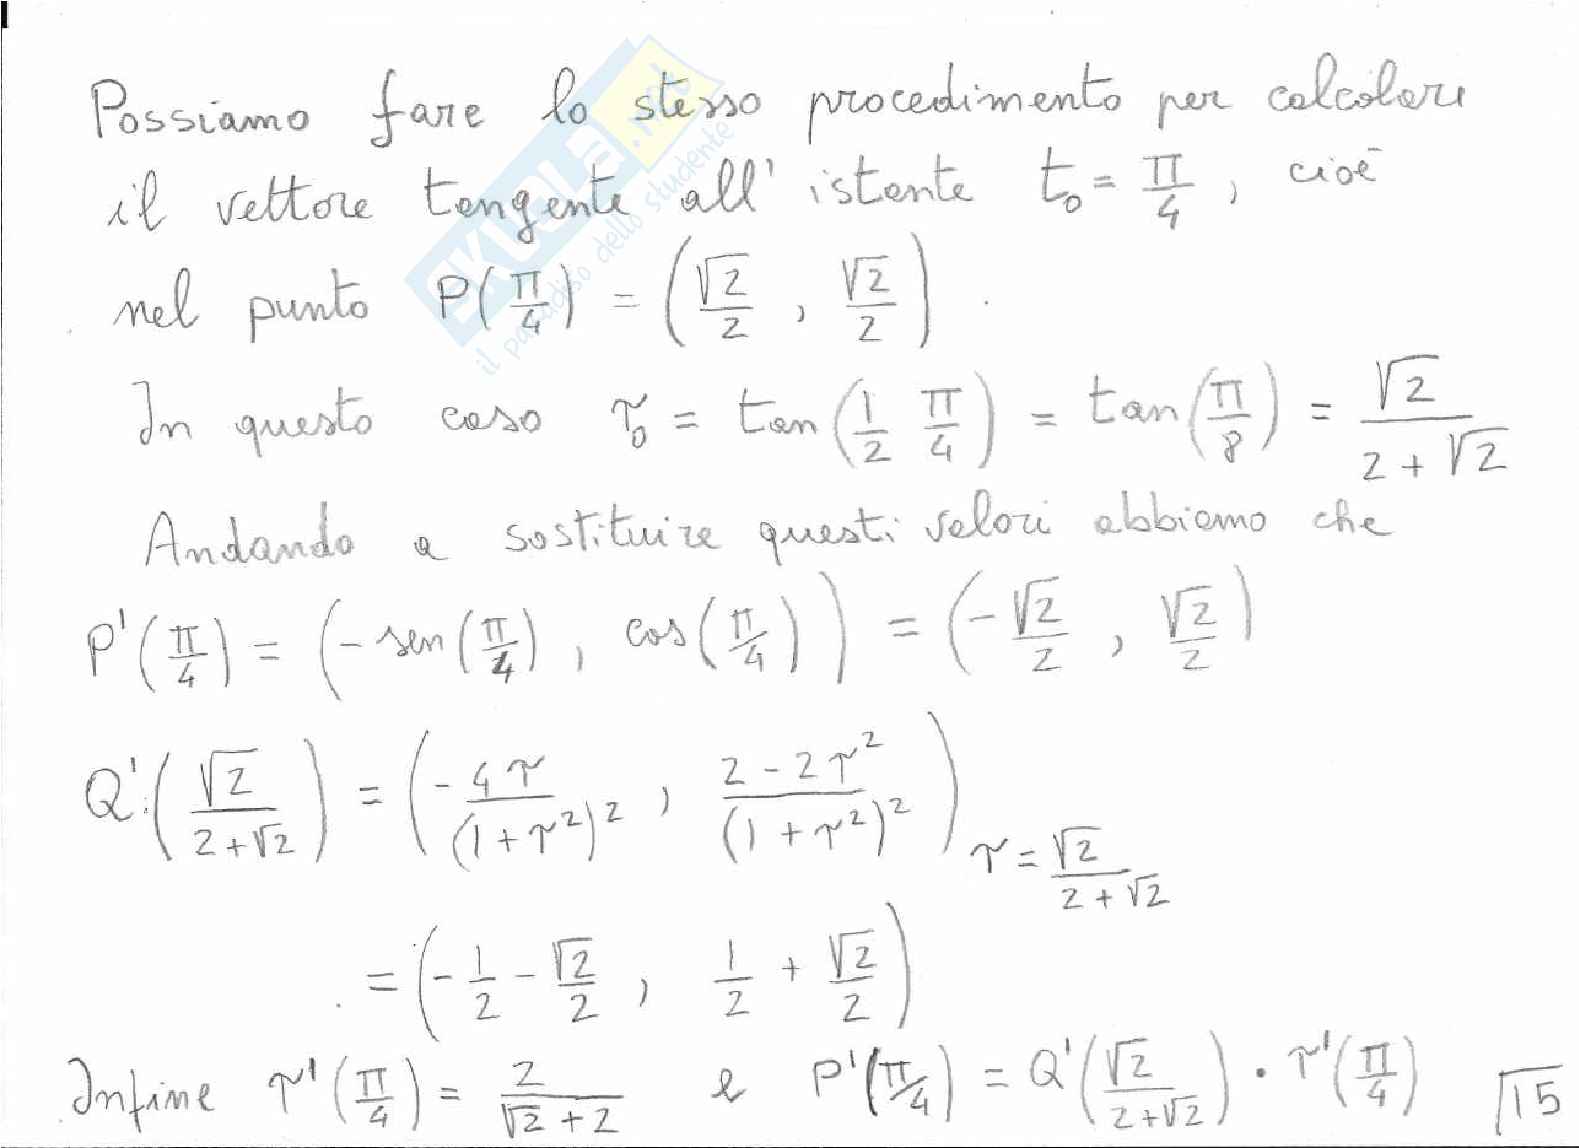 Possiamo fare lo stesso procedimento per calcolare
il vettore tangente all' istante t₀ = π/4 , cioè
nel punto P(π/4) = (√2/2 , √2/2) .
In questo caso τ₀ = tan(1/2 π/4) = tan(π/8) = √2/(2+√2)
Andando a sostituire questi valori abbiamo che
P'(π/4) = (-sen(π/4) , cos(π/4)) = (-√2/2 , √2/2)
Q'(√2/(2+√2)) = (-4τ/(1+τ²)² , (2-2τ²)/(1+τ²)²) τ=√2/(2+√2)
= (-1/2 - √2/2 , 1/2 + √2/2)
Infine τ'(π/4) = 2/(√2+2) e P'(π/4) = Q'(√2/(2+√2)) · τ'(π/4)
15
SKUOLA.net
il paradiso dello studente